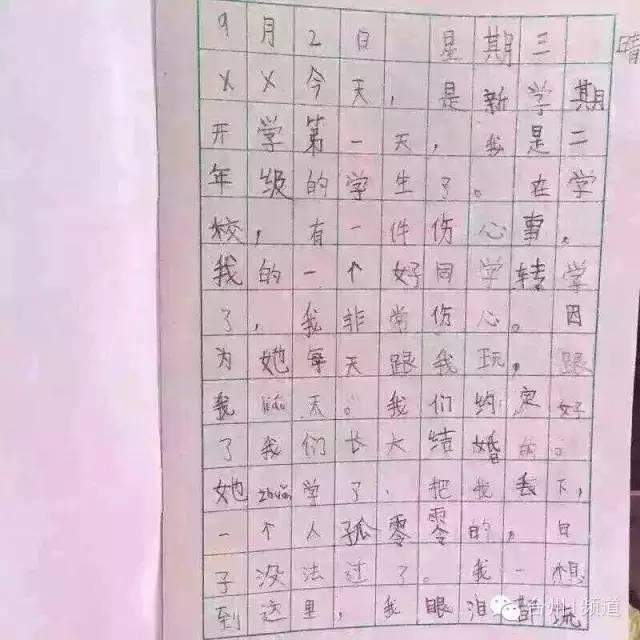 9月2日 星期三 晴
××今天，是新学期
开学第一天，我是二
年级的学生了。在学
校，有一件伤心事，
我的一个好同学转学
了，我非常伤心。因
为她每天跟我玩，跟
我liáo天。我们约定好
了我们长大结婚的。
她zhuǎn学了，把我丢下，
一个人孤零零的，日
子没法过了。我一想
到这里，我眼泪都流
台州1频道